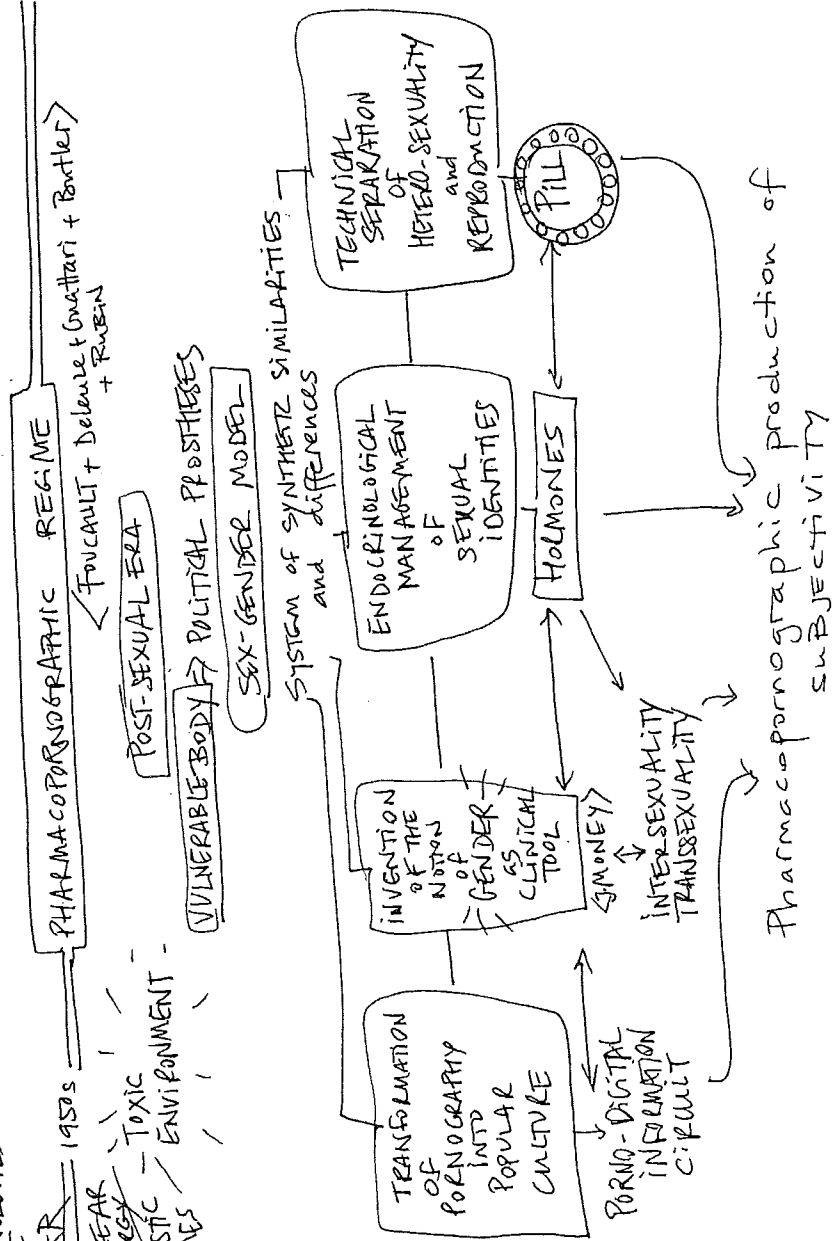 1950s
PHARMACOPORNOGRAPHIC REGIME
<FOUCAULT + Deleuze + Guattari + Butler>
+ RUBIN
TOXIC
ENVIRONMENT
POST-SEXUAL ERA
VULNERABLE BODY => POLITICAL PROSTHESES
SEX-GENDER MODEL
SYSTEM OF SYNTHETIC SIMILARITIES
and differences
TRANFORMATION
OF
PORNOGRAPHY
INTO
POPULAR
CULTURE
INVENTION
OF THE
NOTION
OF
GENDER
as
CLINICAL
TOOL
ENDOCRINOLOGICAL
MANAGEMENT
OF
SEXUAL
IDENTITIES
TECHNICAL
SEPARATION
OF
HETERO-SEXUALITY
and
REPRODUCTION
PORNO-DIGITAL
INFORMATION
CIRCUIT
<JMONEY>
INTERSEXUALITY
TRANSSEXUALITY
HORMONES
PILL
Pharmacopornographic production of
SUBJECTIVITY